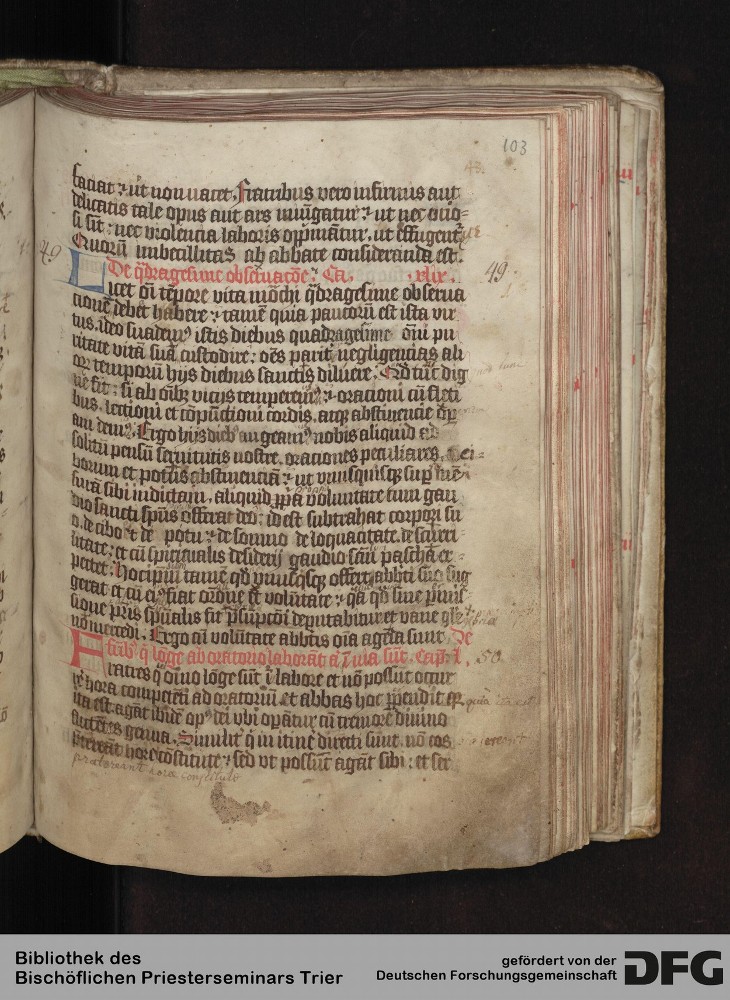 103
faciat ⁊ ut non uacet. Fratribus vero infirmis aut
delicatis tale opus aut ars iniu̅gatur ⁊ ut nec ocio-
si sit: nec violencia laboris opp̅mātur. ut effugent̅
Quorū imbecillitas ab abbate consideranda est.
49 De q̅dragesime obseruac̅oe. Ca. xlix. 49
Licet oī te̅pore vita mo̅chi q̅dragesime obserua
cione̅ debet habere ⁊ tame̅ quia paucorū est ista vir
tus. ideo suadem⁹ istis diebus quadragesime om̅i pu
ritate vitā suā custodire: oe̅s parit̅ negligencias ali
or̅ temporū hijs diebus sanctis diluere. Qd tūc dig
ne fit: si ab oīb⁊ vicijs temperem⁹ ⁊ orationi cū fleti
bus. lectioni et co̅pūctioni cordis. atq⁊ abstinencie op̅
am dem⁹. Ergo hijs dieb⁹ augeam⁹ nobis aliquid ad
solitū pensū seruitutis nostre. orationes peculiares. ci-
borum et potus abstinenciā ⁊ ut vnusquisq⁊ sup̅ me̅
surā sibi indictam. aliquid p̅p̅a voluntate cum gau
dio sancti sp̅us offerat deo: id est subtrahat corpori su
o. de cibo ⁊ de potu ⁊ de somno de loquacitate. de scurri
litate. et cū spiritualis desiderij gaudio sc̅m pascha ex-
pectet. Hoc ip̅m tame̅ qd̅ vnusq̅sq⁊ offert abb̅ti suo sug
gerat et cū ei⁹ fiat or̅one et volu̅tate ⁊ q̅a qd̅ sine p̅mis
sione p̅ris sp̅ualis fit p̅sumpc̅oi deputabitur et vane gl̅e
nō mercedi. Ergo cū volu̅tate abb̅tis oīa age̅da sunt. De
fr̅ib⁹ q̅ lo̅ge ab oratorio laborāt a̅ ī uia su̅t. Cap. l. 50
Fratres q̅ om̅ino lo̅ge sūt ī labore et nō possūt occur
re̅ hora compete̅ti ad oratoriū et abbas hoc p̅pendit
ita est. agāt ibide̅ op⁹ dei vbi opa̅tur cū tremore diuino
flecte̅tes genua. Similit̅ q̅ in itin̅e directi sunt. nō eos
p̅tereāt hore co̅stitute ⁊ sed vt possūt agāt sibi: et ser
praetereant horae constitutae
Bibliothek des
Bischöflichen Priesterseminars Trier
gefördert von der
Deutschen Forschungsgemeinschaft
DFG